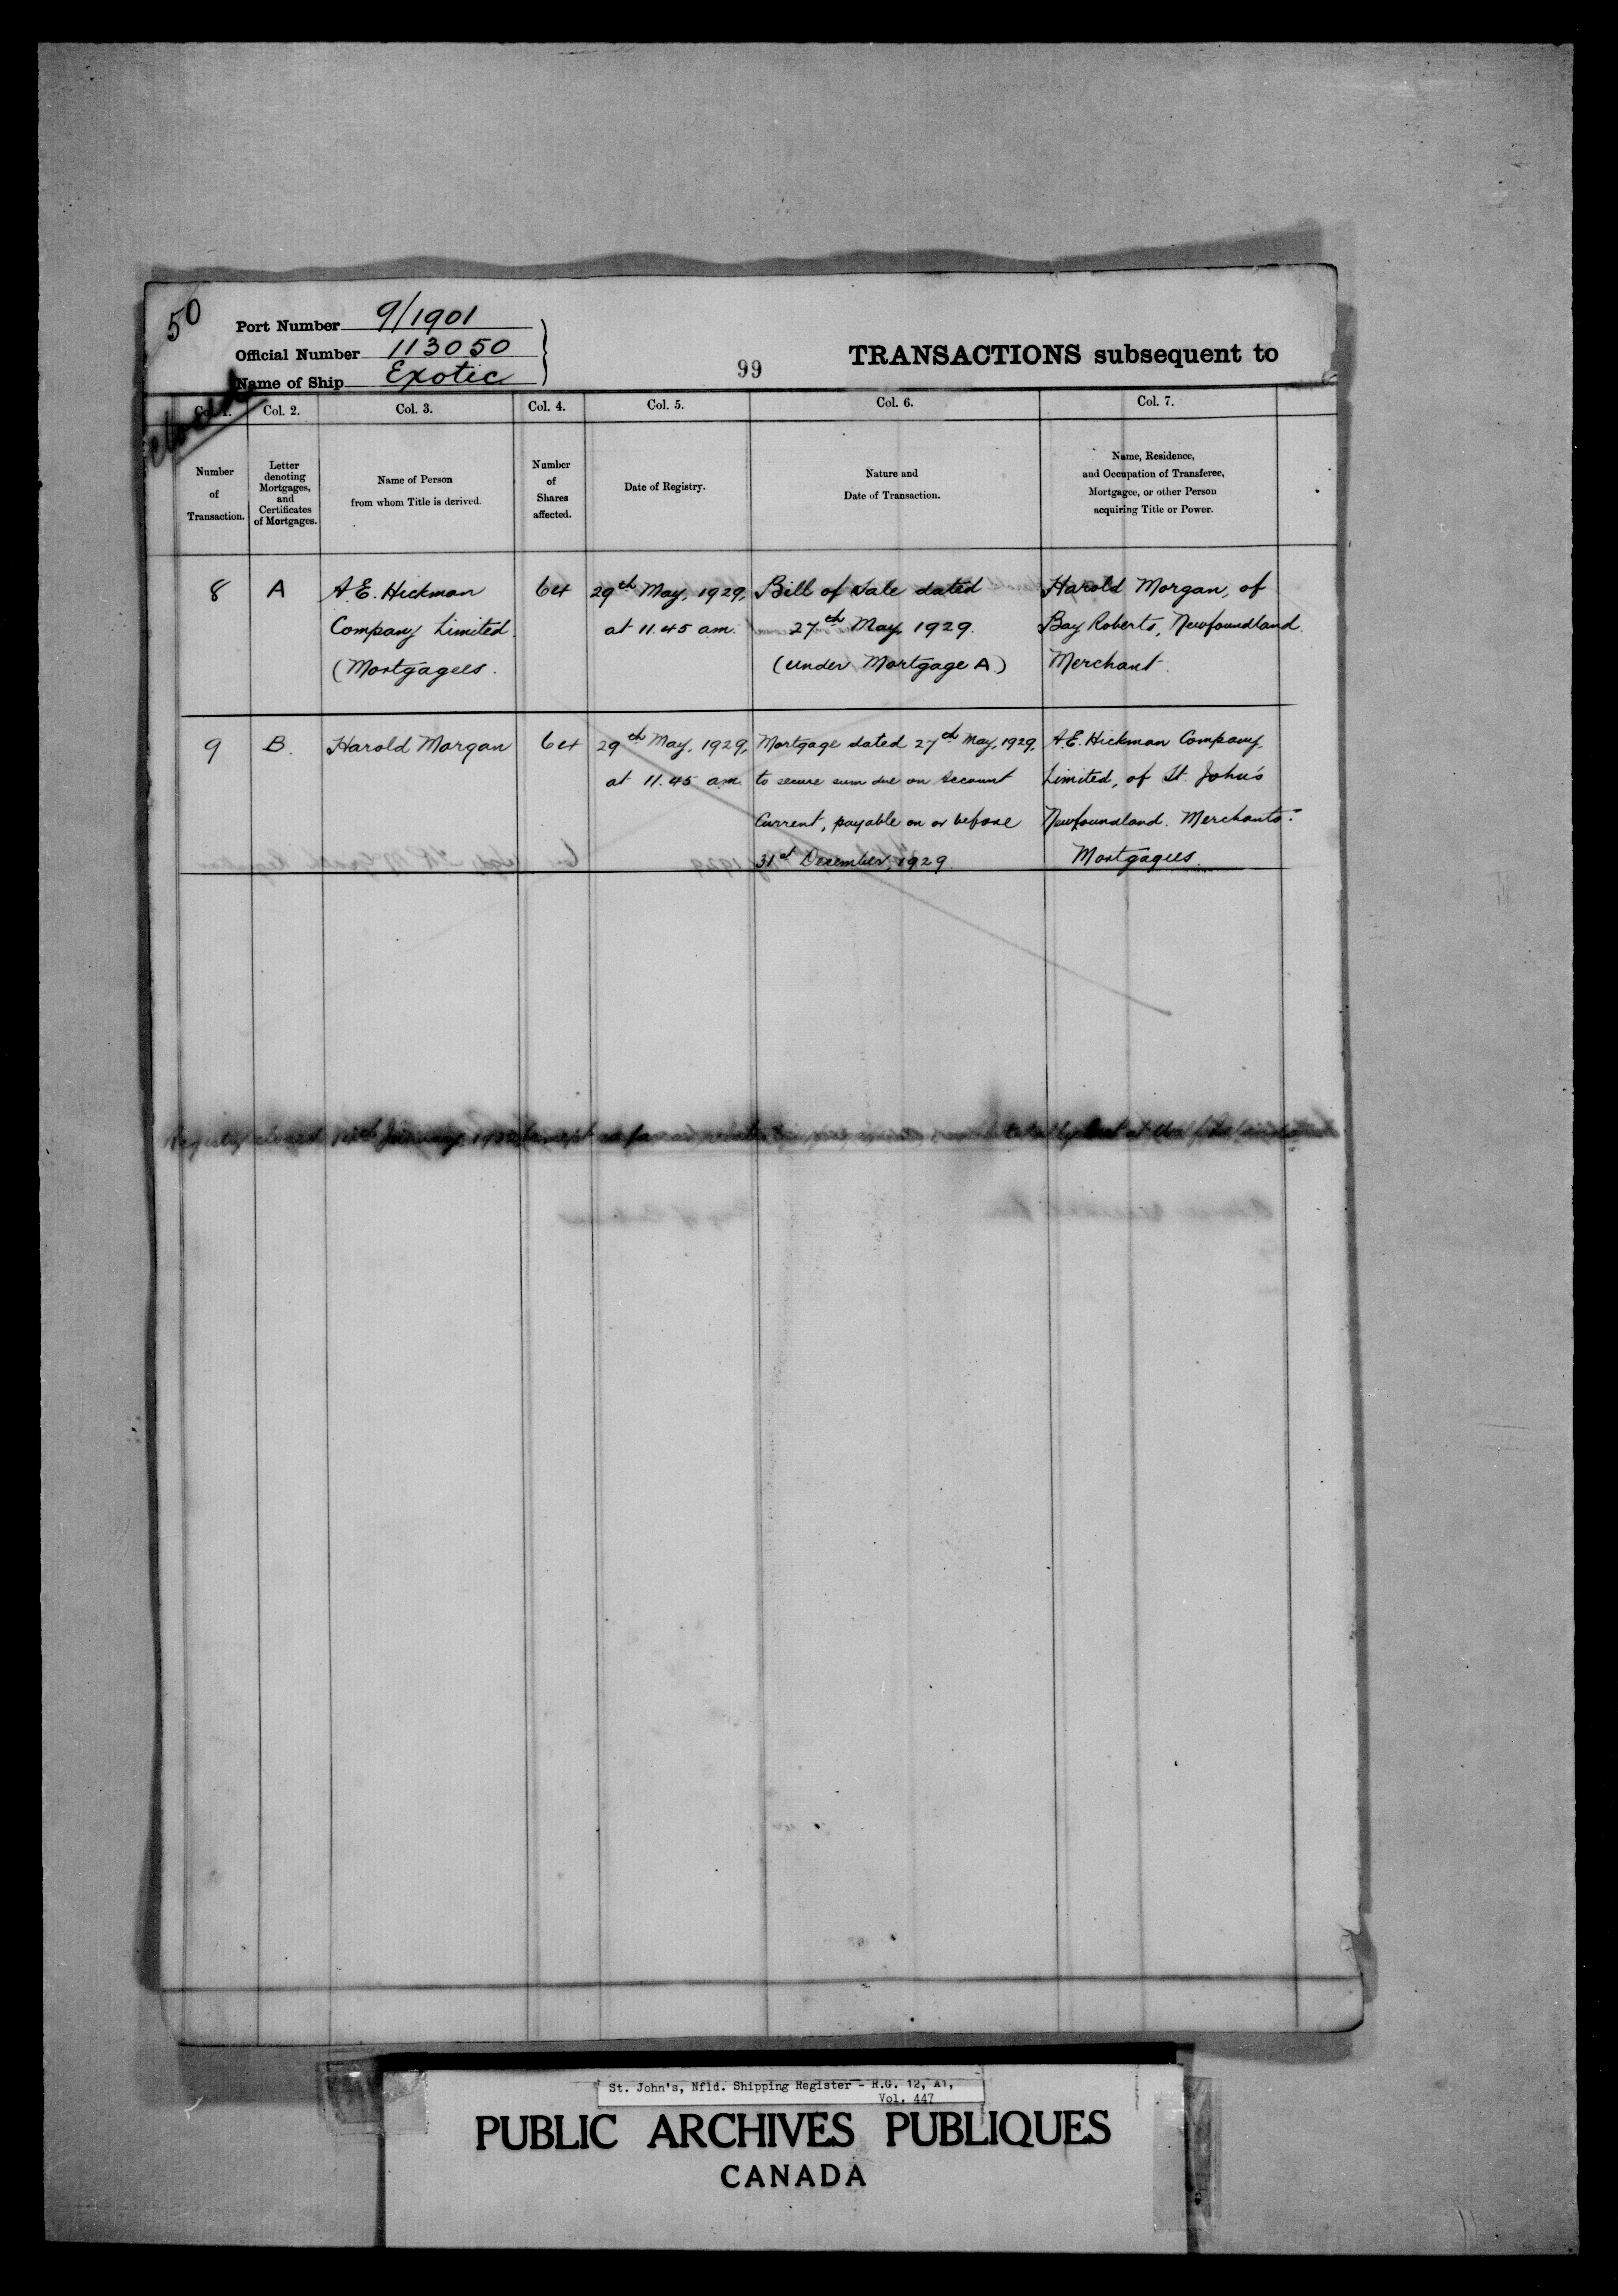 50
Port Number 9/1901
Official Number 113050
Name of Ship Exotic
99
TRANSACTIONS subsequent to
closed
Col. 1. Col. 2. Col. 3. Col. 4. Col. 5. Col. 6. Col. 7.
Number
of
Transaction.
Letter
denoting
Mortgages,
and
Certificates
of Mortgages.
Name of Person
from whom Title is derived.
Number
of
Shares
affected.
Date of Registry.
Nature and
Date of Transaction.
Name, Residence,
and Occupation of Transferee,
Mortgagee, or other Person
acquiring Title or Power.
8
A
A.E. Hickman
Company Limited.
(Mortgagees.
64
29th May, 1929,
at 11.45 am.
Bill of Sale dated
27th May, 1929.
(under Mortgage A)
Harold Morgan, of
Bay Roberts, Newfoundland.
Merchant.
9
B.
Harold Morgan
64
29th May, 1929,
at 11.45 am.
Mortgage dated 27th May, 1929,
to secure sum due on Account
Current, payable on or before
31st December, 1929.
A.E. Hickman Company
Limited, of St. John's
Newfoundland. Merchants.
Mortgagees.
Registry closed January 1932 except so far as relates to totally lost at
St. John's, Nfld. Shipping Register - R.G. 12, A1,
Vol. 447
PUBLIC ARCHIVES PUBLIQUES
CANADA